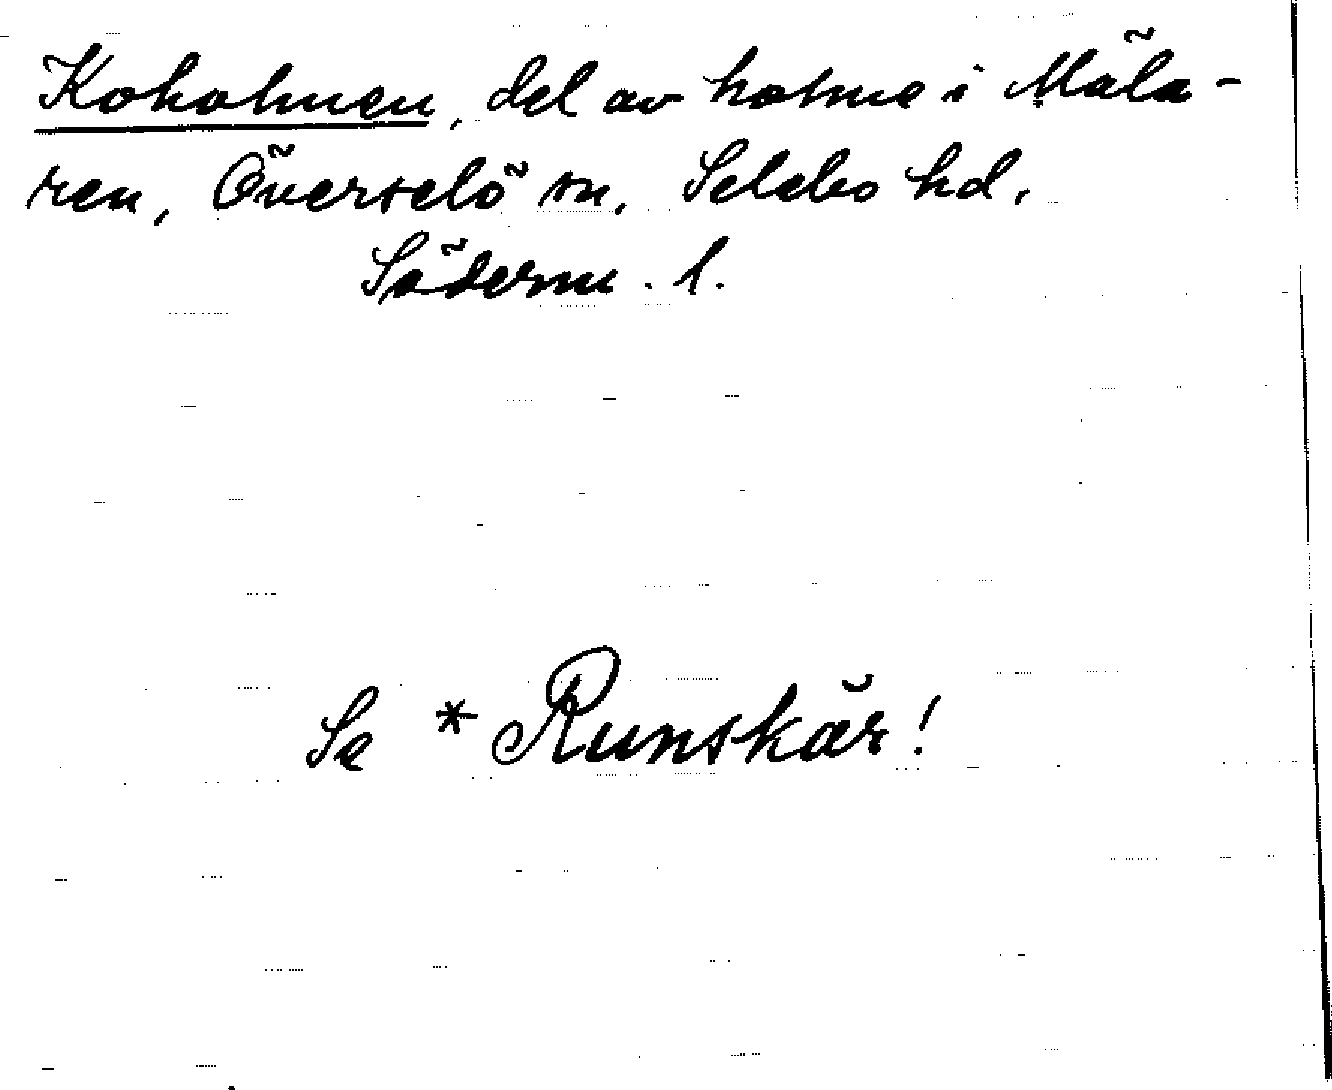 Koholmen, del av holme i Mäla-
ren, Överselö sn, Selebo hd,
Söderm. l.
Se *Runskär!